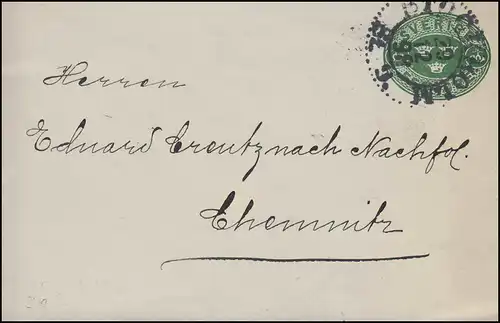 STOCKHOLM
SVERIGE
Herren
Eduard Creutznach Nachfol.
Chemnitz